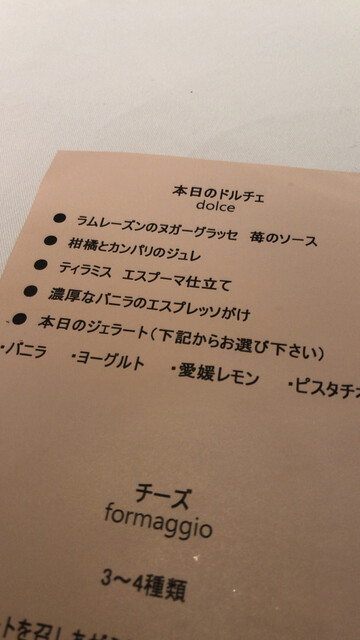 本日のドルチェ
dolce
● ラムレーズンのヌガーグラッセ 苺のソース
● 柑橘とカンパリのジュレ
● ティラミス エスプーマ仕立て
● 濃厚なバニラのエスプレッソがけ
● 本日のジェラート(下記からお選び下さい)
・バニラ ・ヨーグルト ・愛媛レモン ・ピスタチオ
チーズ
formaggio
3～4種類